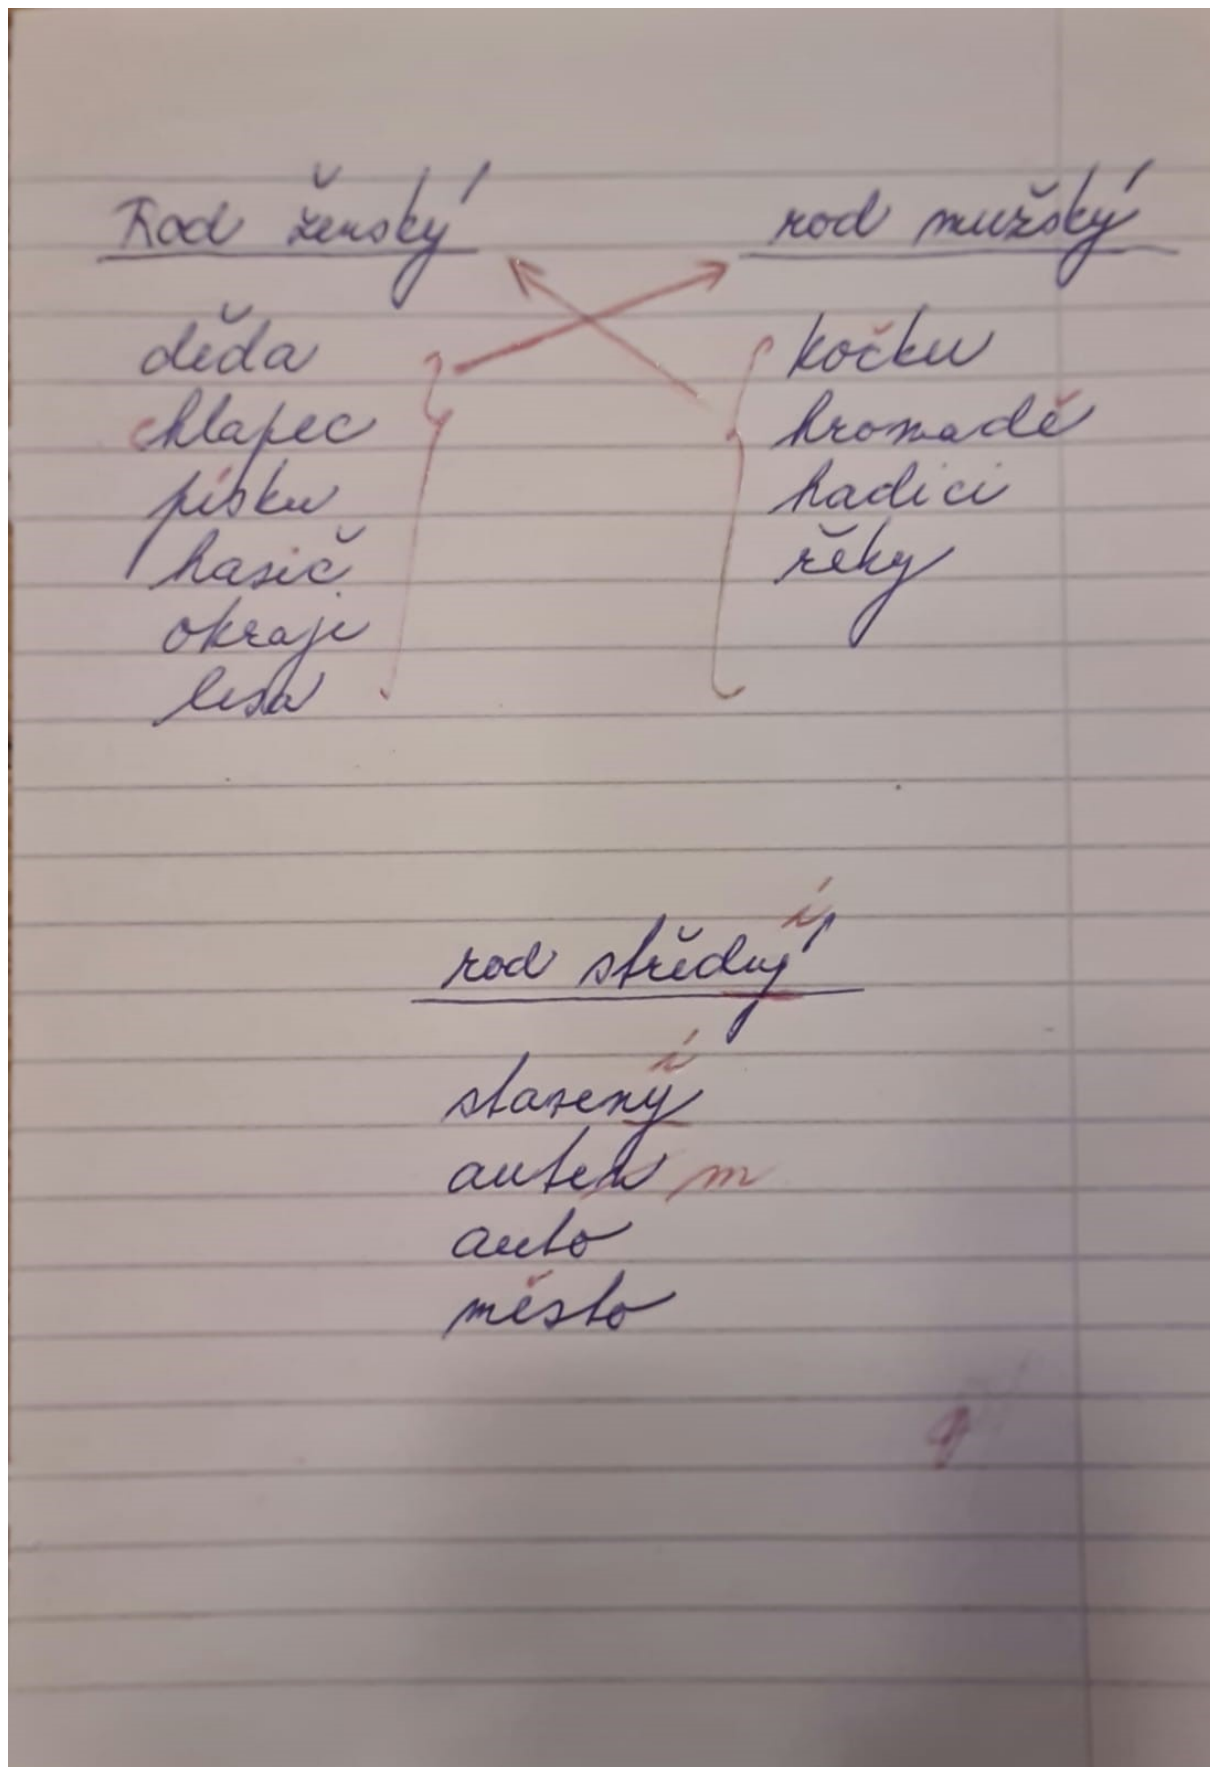 Rod ženský
děda
chlapec
písku
hasič
okraji
lesa
rod mužský
kočku
hromadě
hadici
řeky
í
rod středný
í
stavený
auten m
auto
město